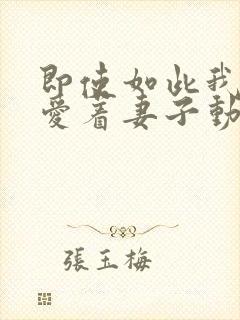 即使如此我
愛着妻子動
張玉梅